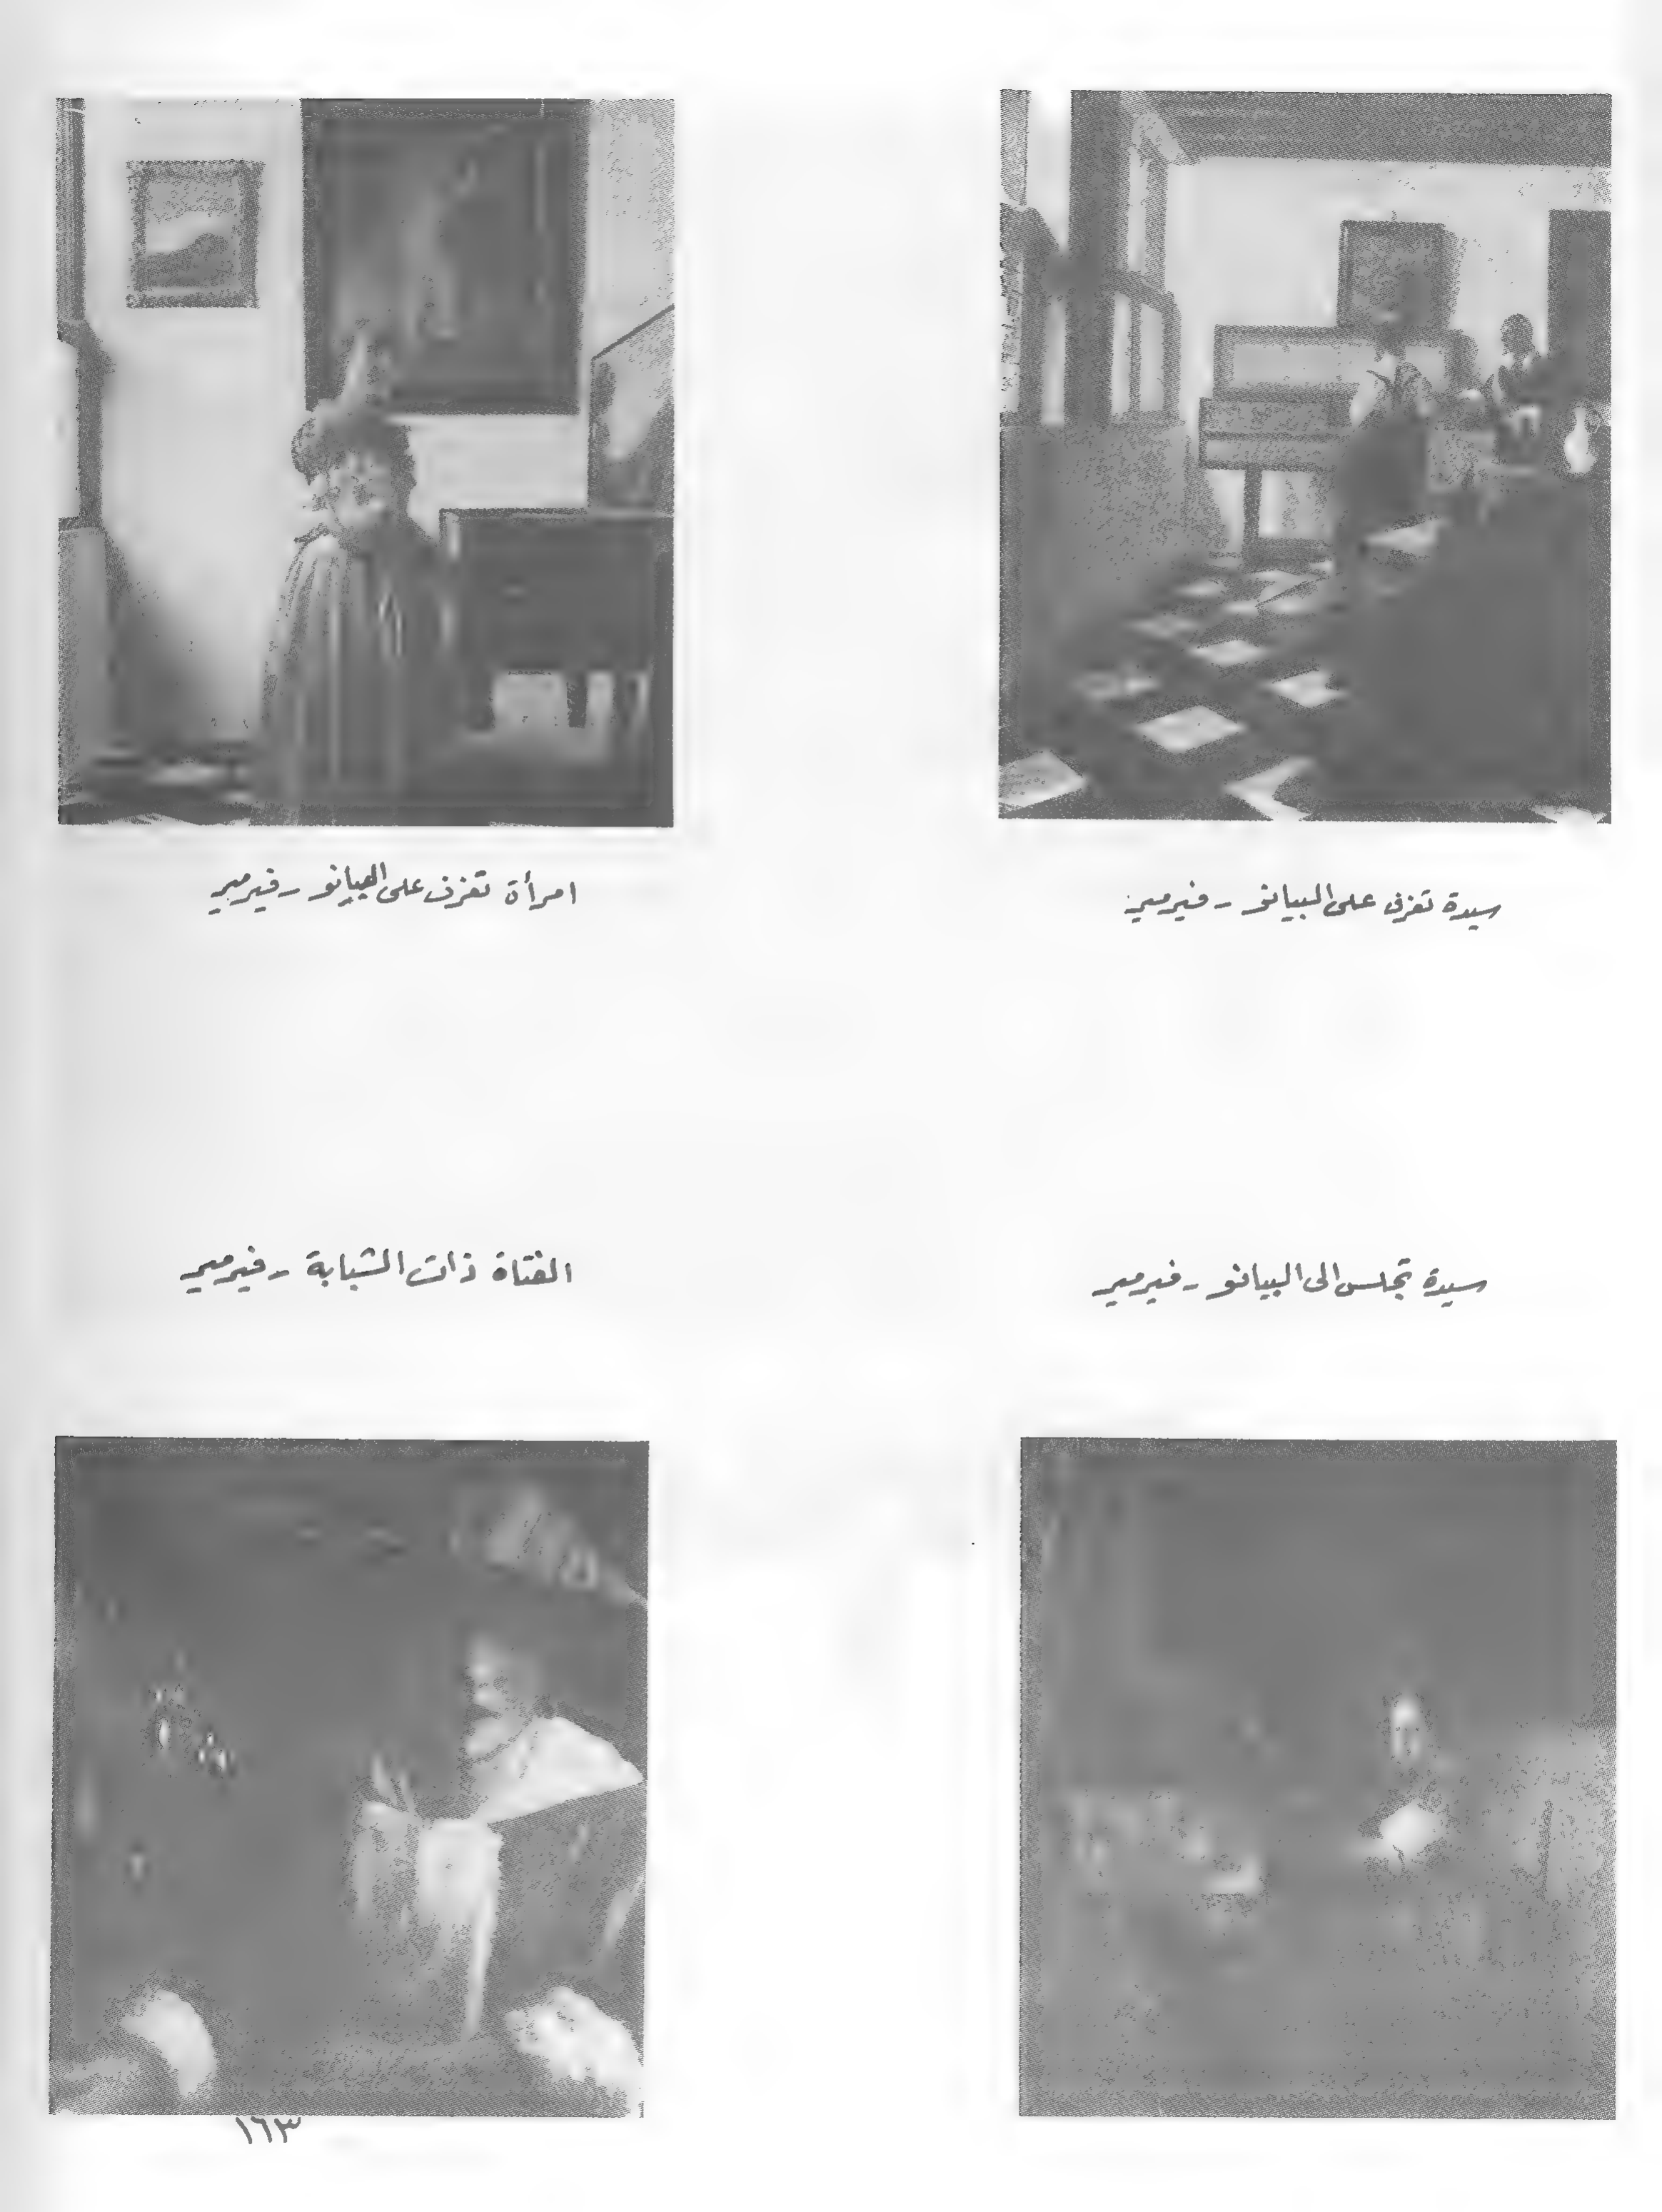 سيدة تعزف على البيانو - فيرمير
امرأة تعزف على البيانو - فيرمير
سيدة تجلس الى البيانو - فيرمير
الفتاة ذات الشبابة - فيرمير
١٦٣